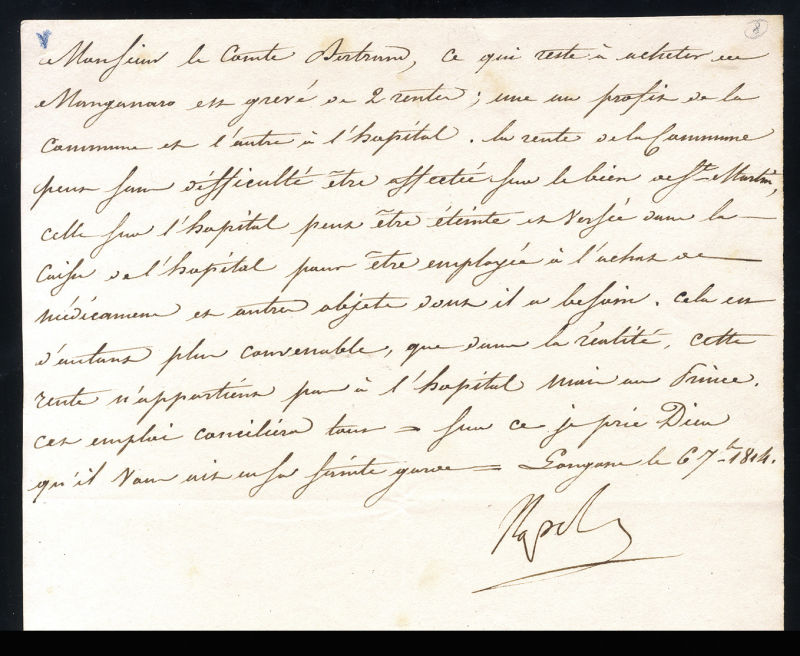 Monsieur le Comte Bertrand, ce qui reste à acheter de
Manganaro est grevé de 2 rentes; une au profit de la
Commune et l'autre à l'hopital. la rente de la Commune
peut sans difficulté être affectée sur le bien de St. Martin,
celle sur l'hopital peut être éteinte et Versée dans la
Caisse de l'hopital pour être employée à l'achat de
médicamens et autres objets dont il a besoin. cela est
d'autant plus convenable, que dans la réalité, cette
rente n'appartient pas à l'hopital mais au Prince.
cet emploi conciliera tout = sur ce je prie Dieu
qu'il Vous ait en sa sainte garde = Longone le 6 7bre 1814.
Napol